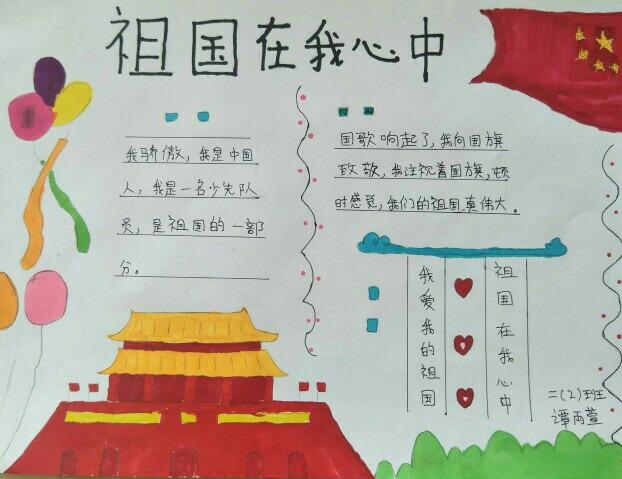 祖国在我心中
我骄傲，我是中国
人，我是一名少先队
员，是祖国的一部
分。
国歌响起了，我向国旗
致敬，我注视着国旗，顿
时感觉，我们的祖国真伟大。
我爱我的祖国
祖国在我心中
二(2)班
谭雨萱